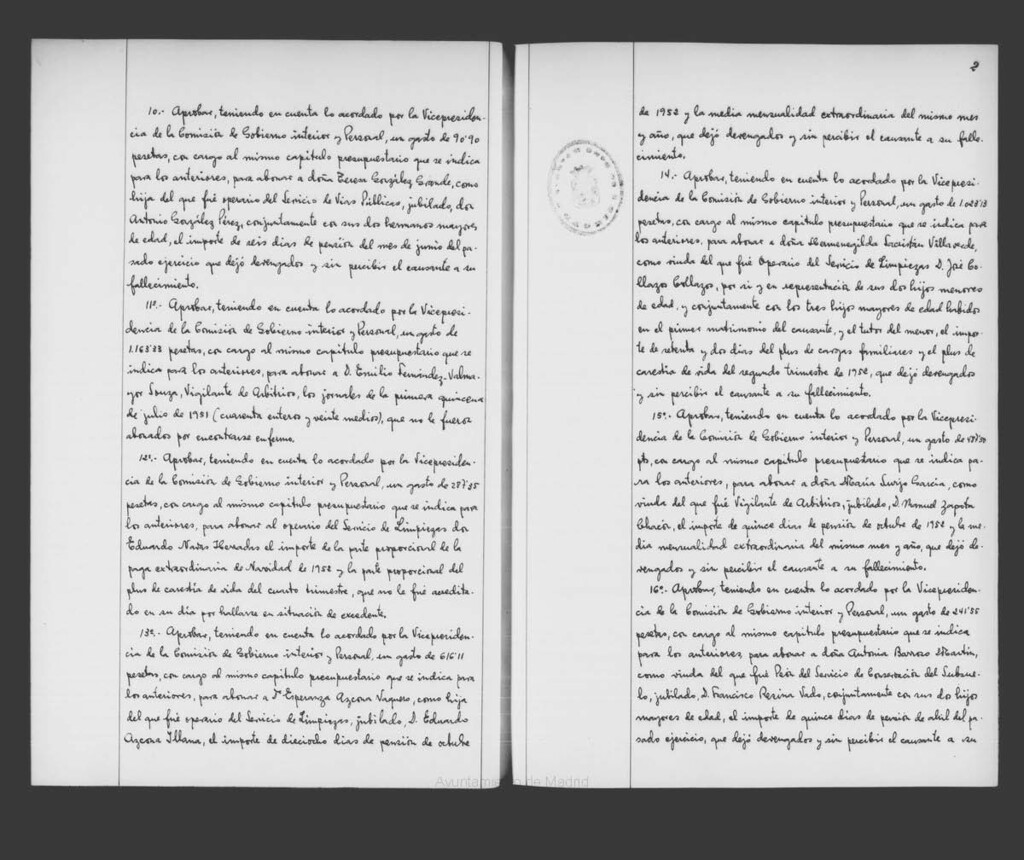 10.- Aprobar, teniendo en cuenta lo acordado por la Vicepresiden-
cia de la Comisión de Gobierno interior y Personal, un gasto de 90'90
pesetas, con cargo al mismo capítulo presupuestario que se indica
para los anteriores, para abonar a doña Teresa González Grande, como
hija del que fué operario del Servicio de Vías Públicas, jubilado, don
Antonio González Pérez, conjuntamente con sus dos hermanos mayores
de edad, el importe de seis días de pensión del mes de junio del pa-
sado ejercicio que dejó devengados y sin percibir el causante a su
fallecimiento.
11º.- Aprobar, teniendo en cuenta lo acordado por la Vicepresi-
dencia de la Comisión de Gobierno interior y Personal, un gasto de
1.163'33 pesetas, con cargo al mismo capítulo presupuestario que se
indica para los anteriores, para abonar a D. Emilio Fernández-Valma-
yor Souza, Vigilante de Arbitrios, los jornales de la primera quincena
de julio de 1951 (cuarenta enteros y veinte medios), que no le fueron
abonados por encontrarse enfermo.
12º.- Aprobar, teniendo en cuenta lo acordado por la Vicepresiden-
cia de la Comisión de Gobierno interior y Personal, un gasto de
pesetas, con cargo al mismo capítulo presupuestario que se indica para
los anteriores, para abonar al operario del Servicio de Limpiezas don
Eduardo el importe de la parte proporcional de la
paga extraordinaria de Navidad de 1952 y la parte proporcional del
plus de carestía de vida del cuarto trimestre, que no le fué acredita-
do en su día por hallarse en situación de excedente.
13º.- Aprobar, teniendo en cuenta lo acordado por la Vicepresiden-
cia de la Comisión de Gobierno interior y Personal, un gasto de 616'11
pesetas, con cargo al mismo capítulo presupuestario que se indica para
los anteriores, para abonar a Dª Esperanza Azcona Vaquero, como hija
del que fué operario del Servicio de Limpiezas, jubilado, D. Eduardo
Azcona Illana, el importe de dieciocho días de pensión de octubre
2
de 1952 y la media mensualidad extraordinaria del mismo mes
y año, que dejó devengados y sin percibir el causante a su falle-
cimiento.
14.- Aprobar, teniendo en cuenta lo acordado por la Vicepresi-
dencia de la Comisión de Gobierno interior y Personal, un gasto de 1.028'13
pesetas, con cargo al mismo capítulo presupuestario que se indica para
los anteriores, para abonar a doña Hermenegilda Villaverde,
como viuda del que fué Operario del Servicio de Limpiezas D. José Co-
llazos Collazos, por sí y en representación de sus dos hijos menores
de edad, y conjuntamente con los tres hijos mayores de edad habidos
en el primer matrimonio del causante, y el tutor del menor, el impor-
te de setenta y dos días del plus de cargas familiares y el plus de
carestía de vida del segundo trimestre de 1952, que dejó devengados
y sin percibir el causante a su fallecimiento.
15º.- Aprobar, teniendo en cuenta lo acordado por la Vicepresi-
dencia de la Comisión de Gobierno interior y Personal, un gasto de
pts, con cargo al mismo capítulo presupuestario que se indica pa-
ra los anteriores, para abonar a doña María García, como
viuda del que fué Vigilante de Arbitrios, jubilado, D. Manuel Zapata
Chacón, el importe de quince días de pensión de octubre de 1952 y la me-
dia mensualidad extraordinaria del mismo mes y año, que dejó de-
vengados y sin percibir el causante a su fallecimiento.
16º.- Aprobar, teniendo en cuenta lo acordado por la Vicepresiden-
cia de la Comisión de Gobierno interior y Personal, un gasto de 241'55
pesetas, con cargo al mismo capítulo presupuestario que se indica
para los anteriores para abonar a doña Antonia Barroso Martín,
como viuda del que fué Peón del Servicio de Conservación del Subsue-
lo, jubilado, D. Francisco conjuntamente con sus dos hijos
mayores de edad, el importe de quince días de pensión de abril del pa-
sado ejercicio, que dejó devengados y sin percibir el causante a su
Ayuntamiento de Madrid